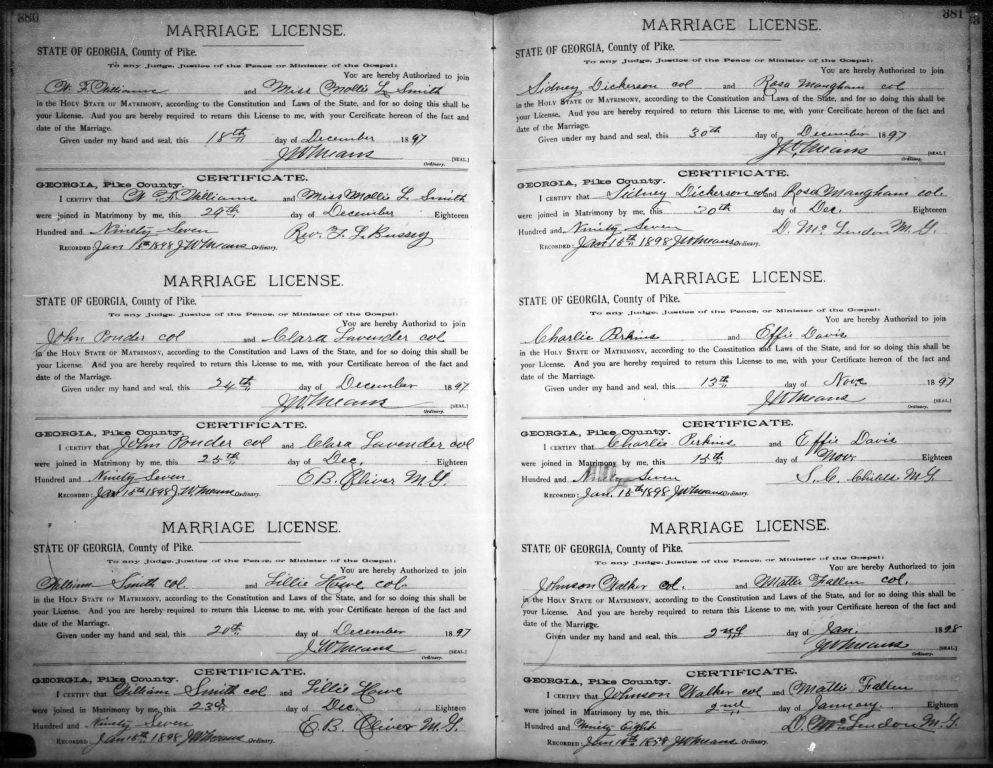 380
MARRIAGE LICENSE.
STATE OF GEORGIA, County of Pike.
To any Judge, Justice of the Peace or Minister of the Gospel:
You are hereby Authorized to join
W. F. Williams and Miss Mollie L. Smith
in the HOLY STATE OF MATRIMONY, according to the Constitution and Laws of the State, and for so doing this shall be
your License. And you are hereby required to return this License to me, with your Certificate hereon of the fact and
date of the Marriage.
Given under my hand and seal, this 18th day of December 1897
J W Means [SEAL]
Ordinary.
CERTIFICATE.
GEORGIA, Pike County.
I CERTIFY that W. F. Williams and Miss Mollie L. Smith
were joined in Matrimony by me, this 29th day of December Eighteen
Hundred and Ninety Seven Rev. F. L. Bussey
RECORDED: Jan 15th 1898 J W Means Ordinary.
MARRIAGE LICENSE.
STATE OF GEORGIA, County of Pike.
To any Judge, Justice of the Peace, or Minister of the Gospel:
You are hereby Authorized to join
John Ponder col and Clara Lavender col
in the HOLY STATE OF MATRIMONY, according to the Constitution and Laws of the State, and for so doing this shall be
your License. And you are hereby required to return this License to me, with your Certificate hereon of the fact and
date of the Marriage.
Given under my hand and seal, this 24th day of December 1897
J W Means [SEAL]
Ordinary.
CERTIFICATE.
GEORGIA, Pike County.
I CERTIFY that John Ponder col and Clara Lavender col
were joined in Matrimony by me, this 25th day of Dec. Eighteen
Hundred and Ninety Seven E. B. Oliver M. G.
RECORDED: Jan 15th 1898 J W Means Ordinary.
MARRIAGE LICENSE.
STATE OF GEORGIA, County of Pike.
To any Judge, Justice of the Peace, or Minister of the Gospel:
You are hereby Authorized to join
William Smith col. and Lillie Howe col.
in the HOLY STATE OF MATRIMONY, according to the Constitution and Laws of the State, and for so doing this shall be
your License. And you are hereby required to return this License to me, with your Certificate hereon of the fact and
date of the Marriage.
Given under my hand and seal, this 20th day of December 1897
J W Means [SEAL]
Ordinary.
CERTIFICATE.
GEORGIA, Pike County.
I CERTIFY that William Smith col and Lillie Howe
were joined in Matrimony by me, this 23d day of Dec. Eighteen
Hundred and Ninety Seven E. B. Oliver M. G.
RECORDED: Jan 15th 1898 J W Means Ordinary.
381
MARRIAGE LICENSE.
STATE OF GEORGIA, County of Pike.
To any Judge, Justice of the Peace or Minister of the Gospel:
You are hereby Authorized to join
Sidney Dickerson col and Rosa Mangham col
in the HOLY STATE OF MATRIMONY, according to the Constitution and Laws of the State, and for so doing this shall be
your License. And you are hereby required to return this License to me, with your Certificate hereon of the fact and
date of the Marriage.
Given under my hand and seal, this 30th day of December 1897
J W Means [SEAL]
Ordinary.
CERTIFICATE.
GEORGIA, Pike County.
I CERTIFY that Sidney Dickerson col and Rosa Mangham col.
were joined in Matrimony by me, this 30th day of Dec. Eighteen
Hundred and Ninety Seven D. McLendon M. G.
RECORDED: Jan 15th 1898 J W Means Ordinary.
MARRIAGE LICENSE.
STATE OF GEORGIA, County of Pike.
To any Judge, Justice of the Peace, or Minister of the Gospel:
You are hereby Authorized to join
Charlie Perkins and Effie Davis
in the HOLY STATE OF MATRIMONY, according to the Constitution and Laws of the State, and for so doing this shall be
your License. And you are hereby required to return this License to me, with your Certificate hereon of the fact and
date of the Marriage.
Given under my hand and seal, this 13th day of Nov. 1897
J W Means [SEAL]
Ordinary.
CERTIFICATE.
GEORGIA, Pike County.
I CERTIFY that Charlie Perkins and Effie Davis
were joined in Matrimony by me, this 15th day of Nov. Eighteen
Hundred and Ninety Seven S. C. Childs M. G.
RECORDED: Jan. 15th 1898 J W Means Ordinary.
MARRIAGE LICENSE.
STATE OF GEORGIA, County of Pike.
To any Judge, Justice of the Peace, or Minister of the Gospel:
You are hereby Authorized to join
Johnson Walker col. and Mattie Fallen col.
in the HOLY STATE OF MATRIMONY, according to the Constitution and Laws of the State, and for so doing this shall be
your License. And you are hereby required to return this License to me, with your Certificate hereon of the fact and
date of the Marriage.
Given under my hand and seal, this 2nd day of Jan. 1898
J W Means [SEAL]
Ordinary.
CERTIFICATE.
GEORGIA, Pike County.
I CERTIFY that Johnson Walker col and Mattie Fallen
were joined in Matrimony by me, this 2nd day of January Eighteen
Hundred and Ninety Eight D. McLendon M. G.
RECORDED: Jan 15th J W Means Ordinary.